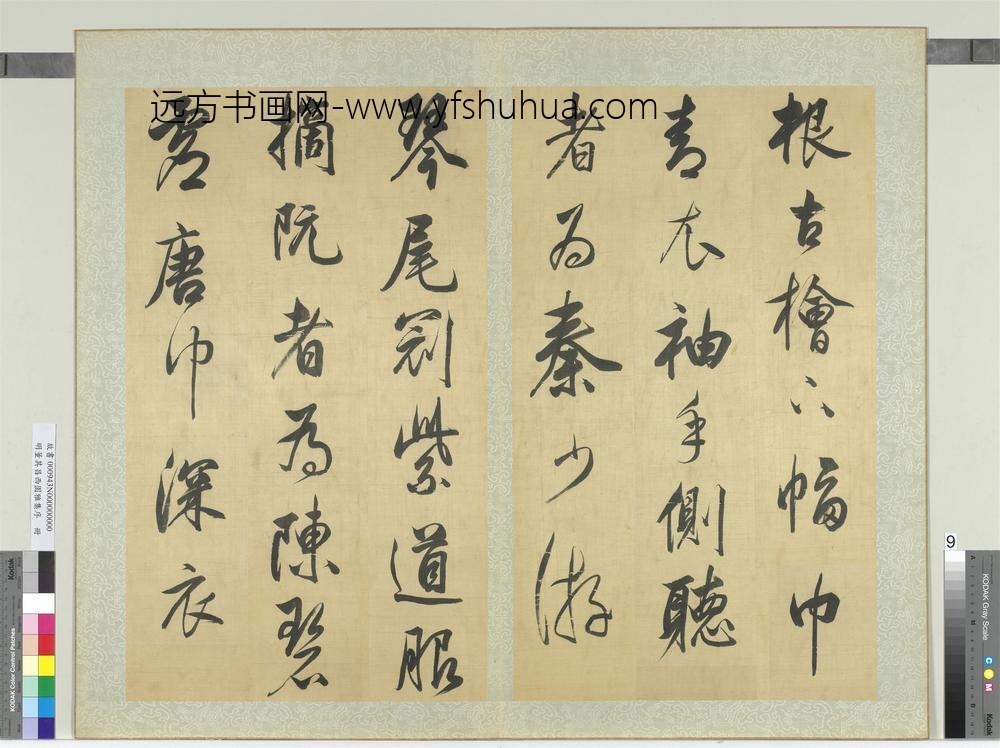 远方书画网-www.yfshuhua.com
根古檜下幅巾
青衣袖手側聽
者為秦少游
琴尾冠紫道服
摘阮者為陳碧
虛唐巾深衣
故書 000943N000000000
明董其昌西園雅集序 冊
9
KODAK Gray Scale
C
Y
M
Kodak
A
M
B
Kodak
KODAK Color Control Patches